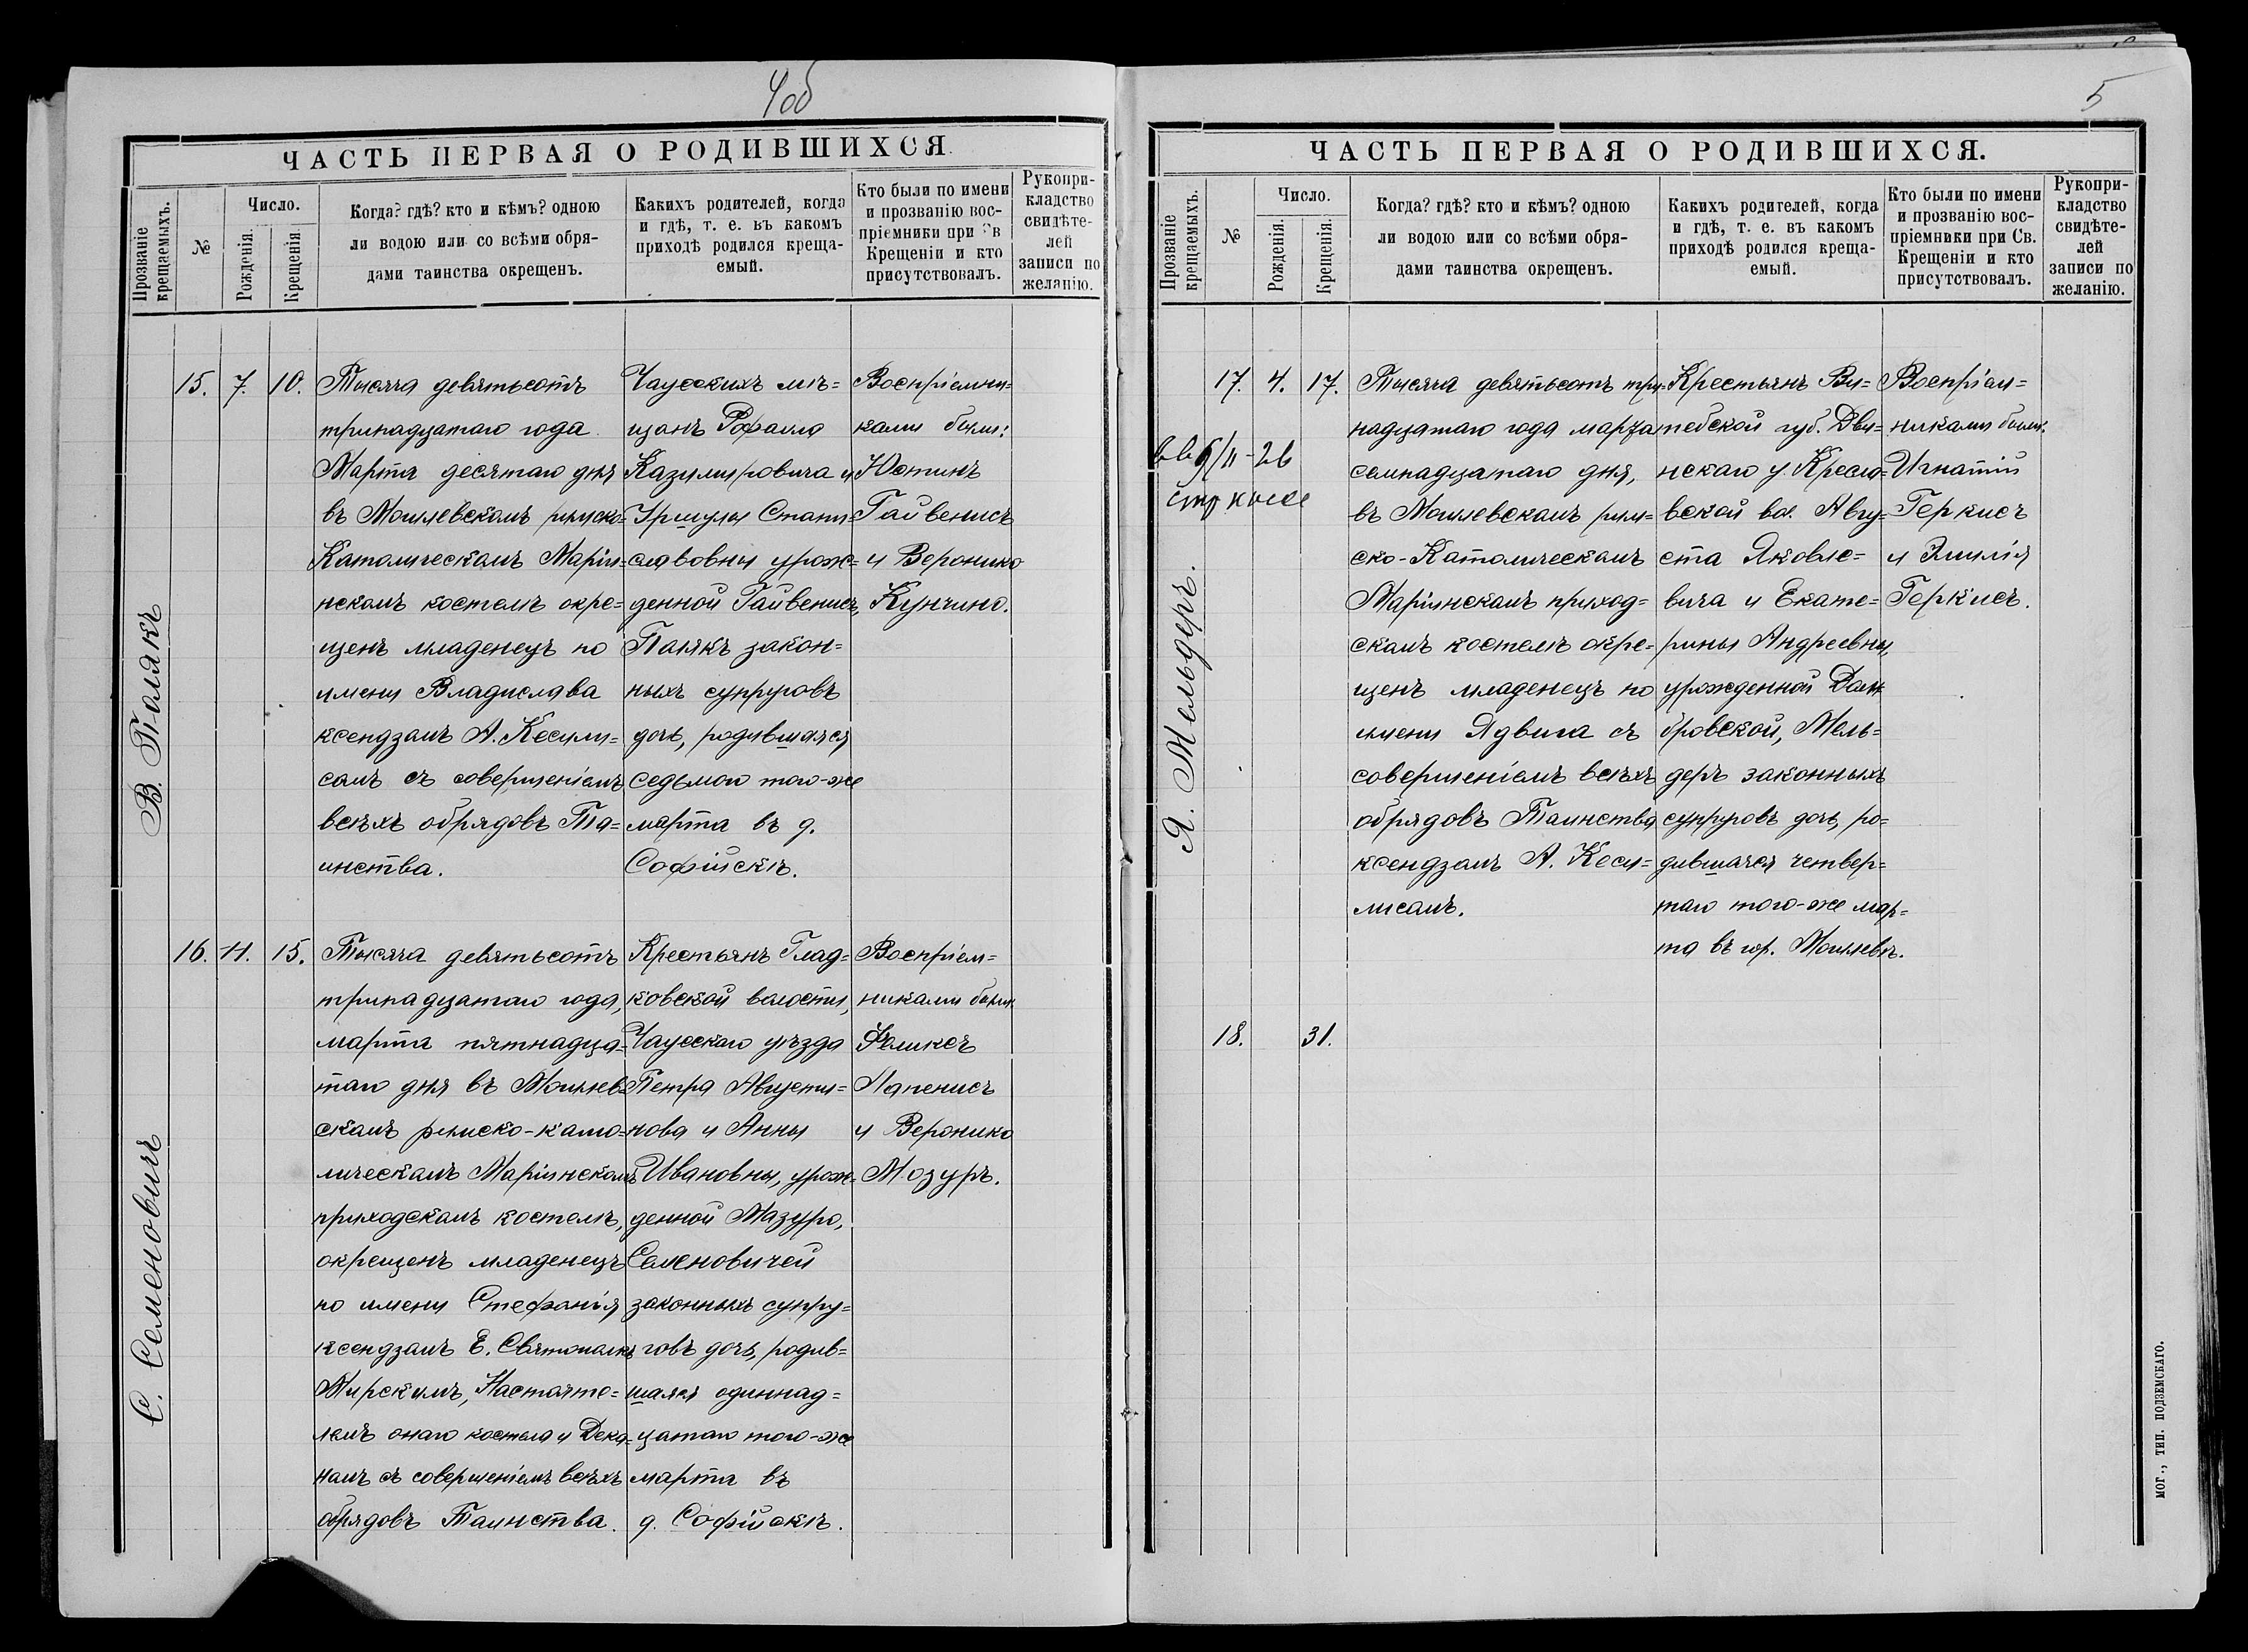 4об
ЧАСТЬ ПЕРВАЯ О РОДИВШИХСЯ.
Прозваніе крещаемыхъ.
№
Число.
Рожденія.
Крещенія.
Когда? гдѣ? кто и кѣмъ? одною
ли водою или со всѣми обря-
дами таинства окрещенъ.
Какихъ родителей, когда
и гдѣ, т. е. въ какомъ
приходѣ родился креща-
емый.
Кто были по имени
и прозванію вос-
пріемники при Св
Крещеніи и кто
присутствовалъ.
Рукопри-
кладство
свидѣте-
лей
записи по
желанію.
В. Полякъ
15. 7. 10.
Тысяча девятьсотъ
тринадцатаго года
Марта десятаго дня
въ Могилевскомъ римско-
Католическомъ Маріи=
нскомъ костелѣ окре=
щенъ младенецъ по
имени Владислава
ксендзомъ А. Кесми=
сомъ съ совершеніемъ
всѣхъ обрядовъ Та=
инства.
Чаусскихъ мѣ=
щанъ Рафаила
Казимировича и
Уршулы Стани=
славовны урож=
денной Гайвенисъ
Полякъ закон=
ныхъ супруговъ
дочь, родившаяся
седьмого того-же
марта въ д.
Софійскѣ.
Воспріемни=
ками были:
Юстинъ
Гайвенисъ
и Вероника
Кунчино.
С. Семеновичъ
16. 11. 15.
Тысяча девятьсотъ
тринадцатаго года,
марта пятнадца=
таго дня въ Могилев=
скомъ римско-като=
лическомъ Маріинскомъ
приходскомъ костелѣ,
окрещенъ младенецъ
по имени Стефанія
ксендзомъ Е. Святополкъ
Мирскимъ, Настояте=
лемъ онаго костела и Дека=
номъ съ совершеніемъ всѣхъ
обрядовъ Таинства.
Крестьянъ Глад=
ковской волости,
Чаусскаго уѣзда
Петра Августи=
нова и Анны
Ивановны, урож=
денной Мазуро,
Семеновичей
законныхъ супру=
говъ дочь, родив=
шаяся одиннад=
цатаго того-же
марта въ
д. Софійскѣ.
Воспріем=
никами были
Феликсъ
Лапенисъ
и Вероника
Мозуръ.
5
ЧАСТЬ ПЕРВАЯ О РОДИВШИХСЯ.
Прозваніе крещаемыхъ.
№
Число.
Рожденія.
Крещенія.
Когда? гдѣ? кто и кѣмъ? одною
ли водою или со всѣми обря-
дами таинства окрещенъ.
Какихъ родителей, когда
и гдѣ, т. е. въ какомъ
приходѣ родился креща-
емый.
Кто были по имени
и прозванію вос-
пріемники при Св.
Крещеніи и кто
присутствовалъ.
Рукопри-
кладство
свидѣте-
лей
записи по
желанію.
Я. Мельдеръ.
17. 4. 17.
Тысяча девятьсотъ три=
надцатаго года марта
семнадцатаго дня,
въ Могилевскомъ рим=
ско-Католическомъ
Маріинскомъ приход=
скомъ костелѣ окре=
щенъ младенецъ по
имени Ядвига съ
совершеніемъ всѣхъ
обрядовъ Таинства
ксендзомъ А. Кесм=
лисомъ.
Крестьянъ Ви=
тебской губ. Дви=
нскаго у. Кресла=
вской вол. Авгу=
ста Яковле=
вича и Екате=
рины Андреевны,
урожденной Дом=
бровской, Мель=
деръ законныхъ
супруговъ дочь, ро=
дившаяся четвер=
таго того-же мар=
та въ гор. Могилевѣ.
Воспріем=
никами были:
Игнатій
Геркисъ
и Эмилія
Геркисъ.
18. 31.
МОГ., ТИП. ПОДЗЕМСКАГО.